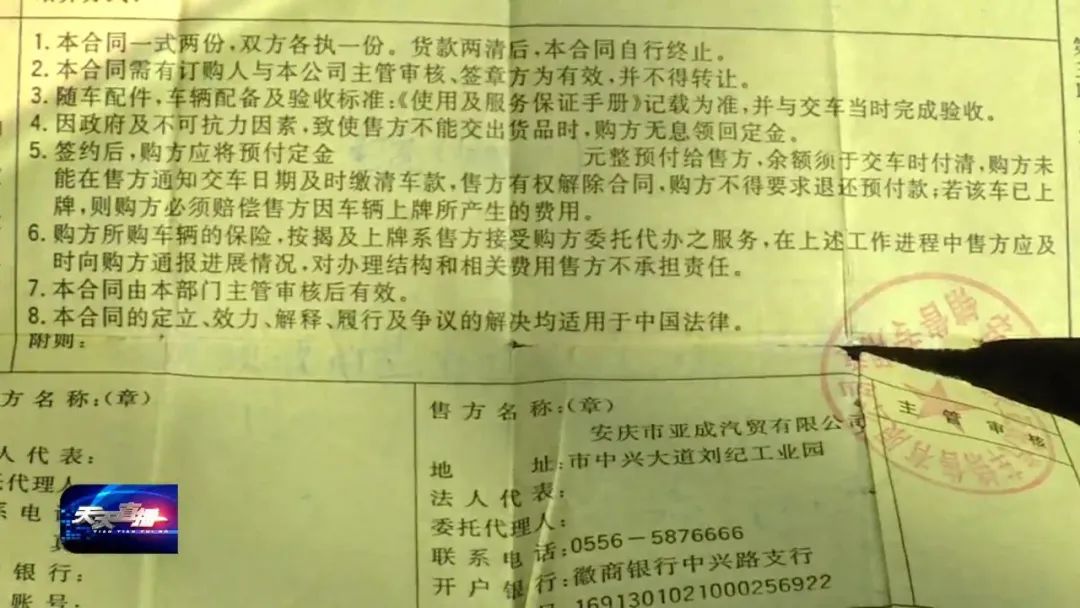 1. 本合同一式两份，双方各执一份。货款两清后，本合同自行终止。
2. 本合同需有订购人与本公司主管审核、签章方为有效，并不得转让。
3. 随车配件，车辆配备及验收标准：《使用及服务保证手册》记载为准，并与交车当时完成验收。
4. 因政府及不可抗力因素，致使售方不能交出货品时，购方无息领回定金。
5. 签约后，购方应将预付定金 元整预付给售方，余额须于交车时付清，购方未
能在售方通知交车日期及时缴清车款，售方有权解除合同，购方不得要求退还预付款；若该车已上
牌，则购方必须赔偿售方因车辆上牌所产生的费用。
6. 购方所购车辆的保险，按揭及上牌系售方接受购方委托代办之服务，在上述工作进程中售方应及
时向购方通报进展情况，对办理结构和相关费用售方不承担责任。
7. 本合同由本部门主管审核后有效。
8. 本合同的定立、效力、解释、履行及争议的解决均适用于中国法律。
附则：
方名称：（章）
人代表：
托代理人
系电
银行：
账号：
售方名称：（章）
安庆市亚成汽贸有限公司
地 址：市中兴大道刘纪工业园
法人代表：
委托代理人：
联系电话：0556－5876666
开户银行：徽商银行中兴路支行
1691301021000256922
主管审核
天天直播
TIAN TIAN ZHI BO